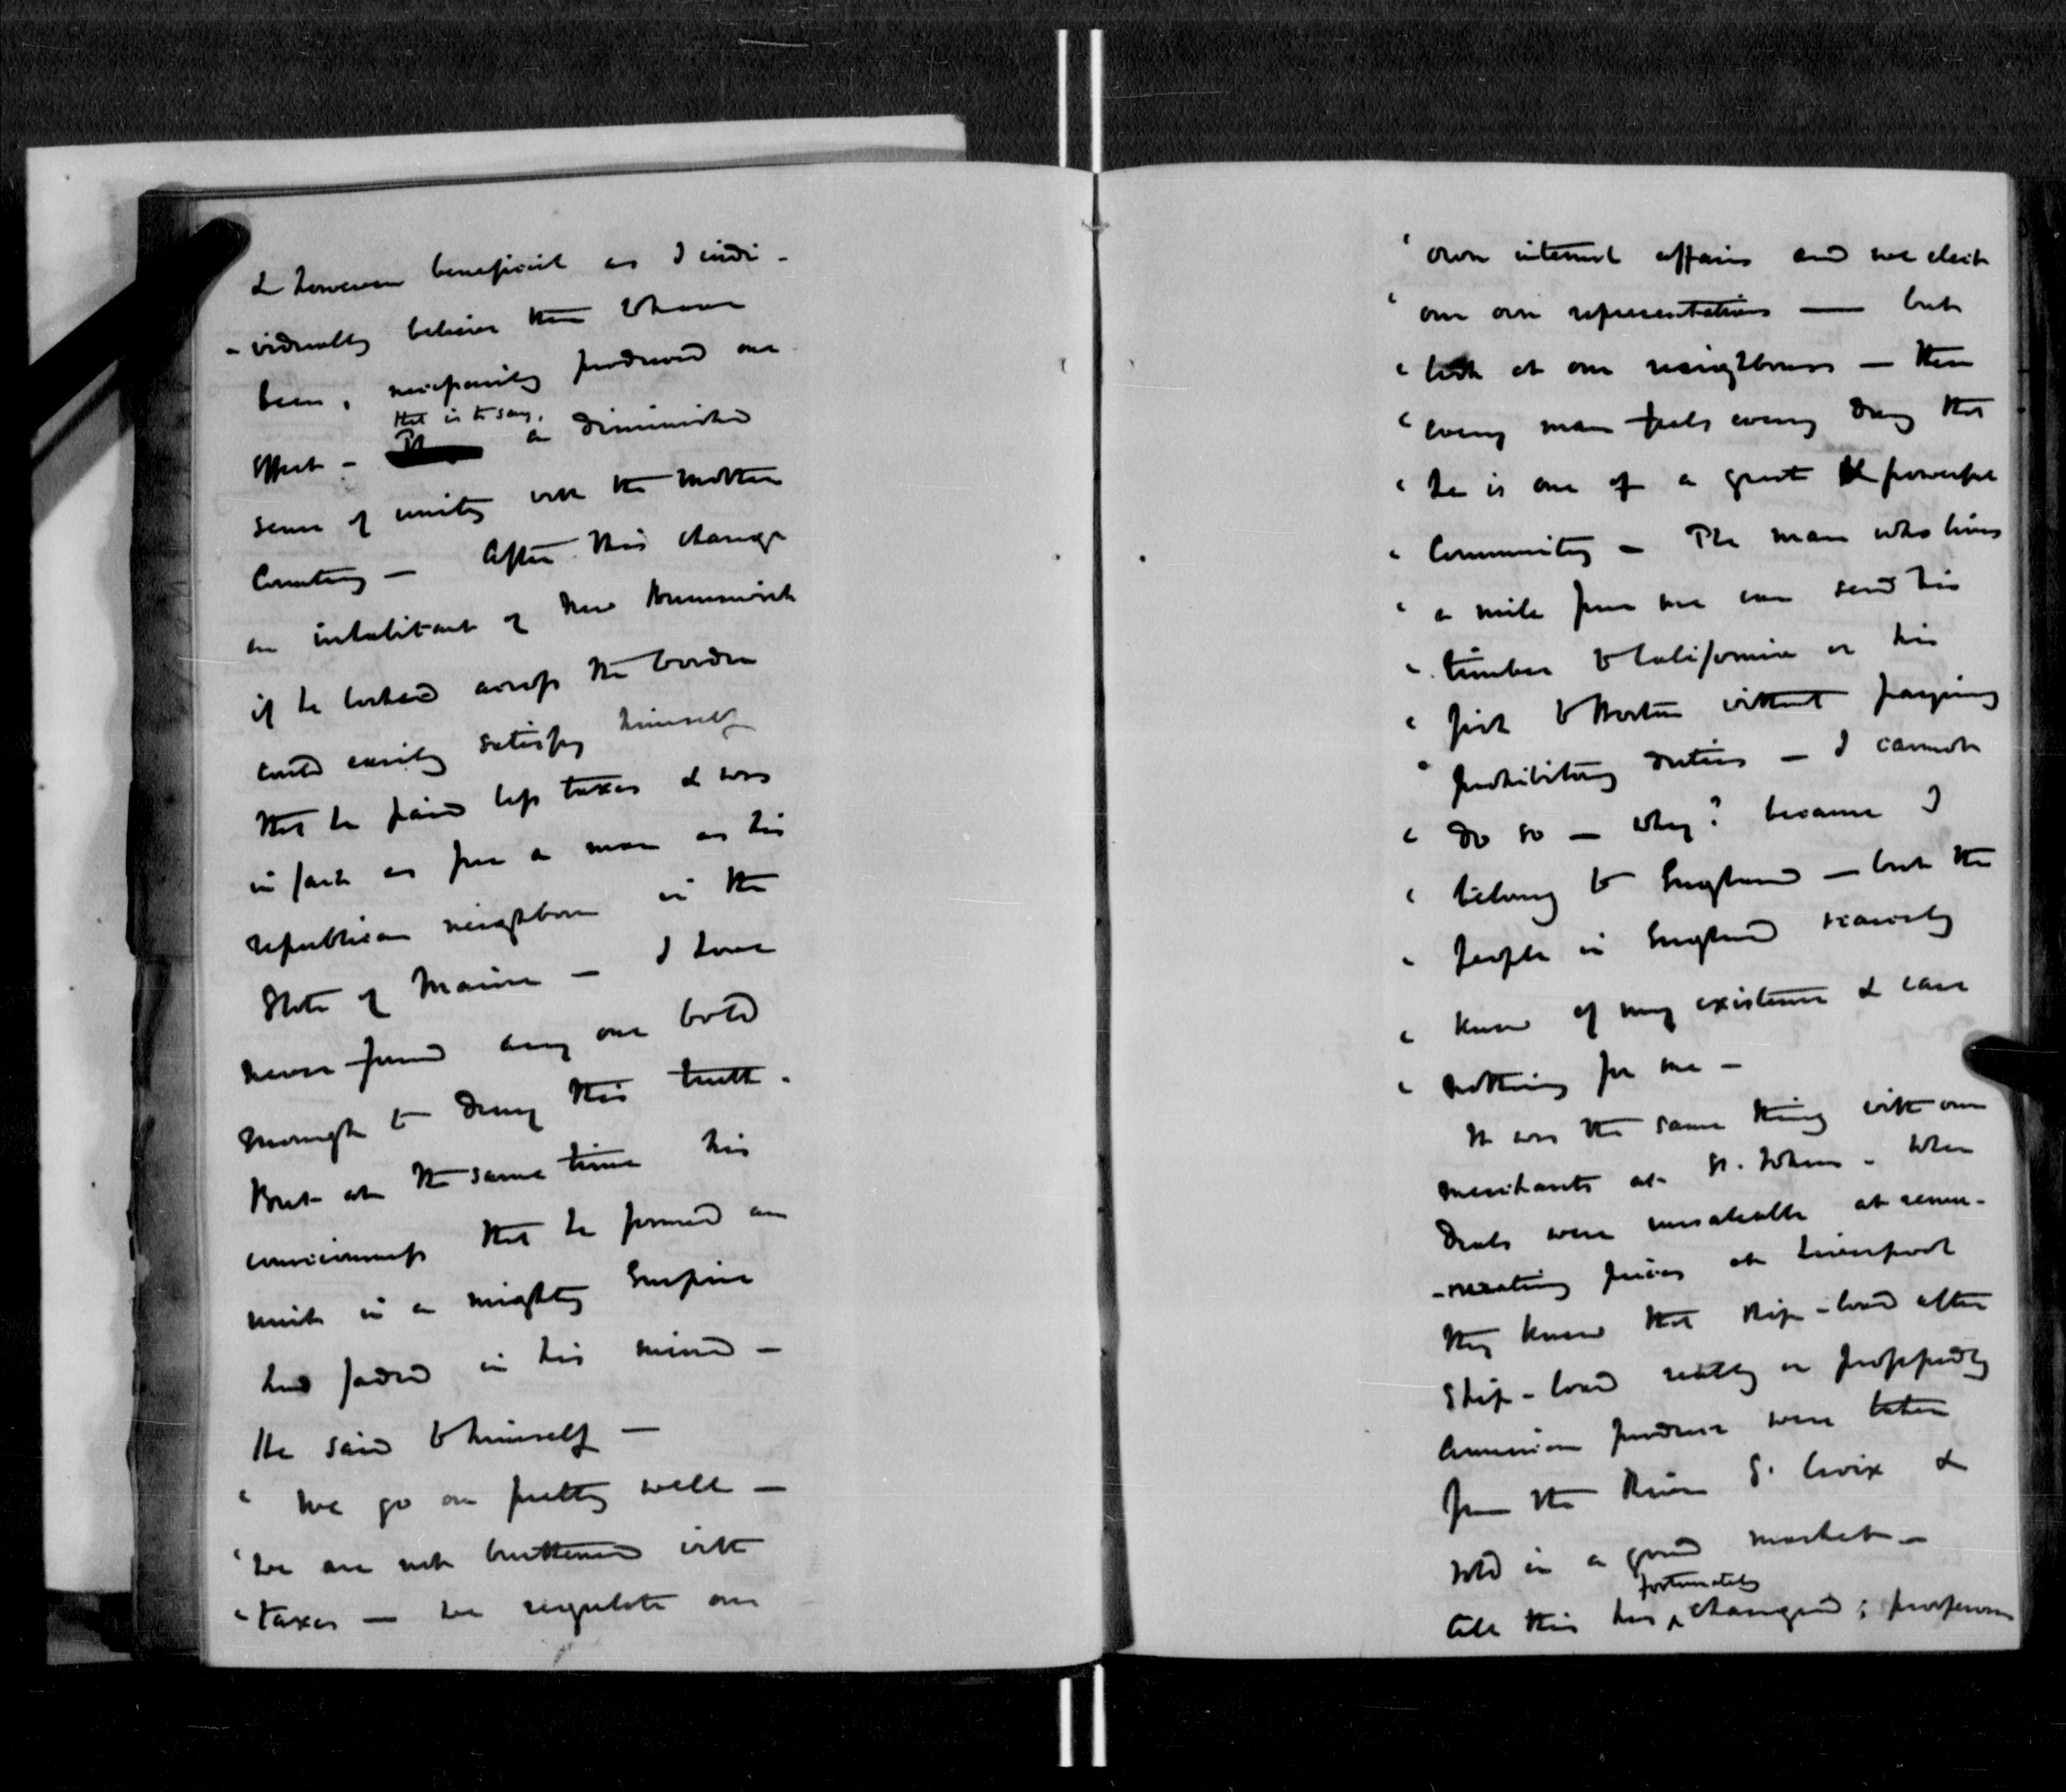 & however beneficial as I indi-
-vidually believe them to have
been, necessarily produced one
that is to say,
effect - a diminished
sense of unity with the Mother
Country - After this change
an inhabitant of New Brunswick
if he looked across the border
could easily satisfy himself
that he paid less taxes & was
in fact as free a man as his
republican neighbour in the
State of Maine - I have
never found any one bold
enough to deny this truth.
But at the same time his
consciousness that he formed an
unit in a mighty Empire
had faded in his mind -
He said to himself -
" We go on pretty well -
" we are not burthened with
" taxes - we regulate our
" own internal affairs and we elect
" our own representatives — but
" look at our neighbours - there
" every man feels every day that
" he is one of a great & powerful
" Community - The man who lives
" a mile from me can send his
" timber to California or his
" fish to Boston without paying
" prohibitory duties - I cannot
" do so - why? because I
" belong to England - but the
" people in England scarcely
" know of my existence & care
" nothing for me -
It was the same thing with our
merchants at St. John - When
Deals were unsaleable at remu-
-nerating prices at Liverpool
they knew that ship-load after
Ship-load really or professedly
American produce were taken
from the River St. Croix &
sold in a good market -
fortunately
All this has ^ changed ; prosperous